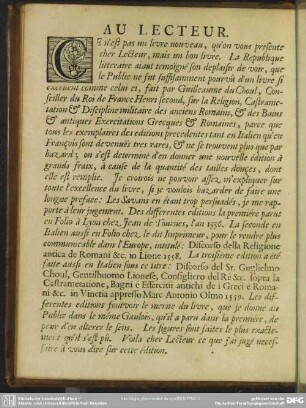 AU LECTEUR.
CE n'est pas un livre nouveau, qu'on vous presente
cher Lecteur, mais un bon livre. La Republique
litteraire aiant temoigné son deplaisir de voir, que
le Public ne fut suffisamment pourvû d'un livre si
excellent comme celui ci, fait par Guilleaume du Choul, Con-
seiller du Roi de France Henri second, sur la Religion, Castrame-
tation & Discipline militaire des anciens Romains, & des Bains
& antiques Exercitations Grecques & Romaines, parce que
tous les exemplaires des editions precedentes tant en Italien qu'en
François sont devenüs tres rares, & ne se trouvent plus que par
hazard; on s'est determiné d'en donner une nouvelle édition à
grands fraix, à cause de la quantité des tailles douces, dont
elle est remplie. Je croirois ne pouvoir assez m'expliquer sur
toute l'excellence du livre, si je voulois hazarder de faire une
longue preface: Les Savans en étant trop persuadés, je me rap-
porte à leur jugement. Des differentes editions la premiere parut
en Folio à Lyon chez Jean de Tournes, l'an 1556. La seconde en
Italien aussi en Folio chez le dit Imprimeur, pour le rendre plus
communicable dans l'Europe, intitulé: Discorso della Religione
antica de Romani &c. in Lione 1558. La troisieme edition a été
faite aussi en Italien sous ce titre: Discorso del Sr. Guglielmo
Choul, Gentilhuomo Lionese, Consigliero del Ré &c. sopra la
Castrametazione, Bagni è Essercitii antichi de i Greci è Roma-
ni &c. in Vinetia appresso Marc Antonio Olmo 1559. Les dif-
ferentes editions font voir le merite du livre, que je donne au
Public dans le même Gaulois, qu'il a paru dans la premiere, de
peur d'en alterer le sens. Les figures sont faites le plus exacte-
ment qu'il s'est pû. Voila cher Lecteur ce que j'ai jugé neces-
saire à vous dire sur cette édition.